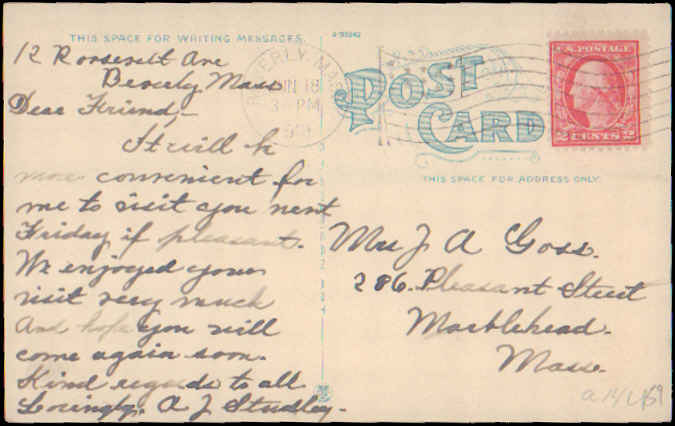 THIS SPACE FOR WRITING MESSAGES.
12 Roosevelt Ave
Beverly Mass
Dear Friend,-
It will be
more convenient for
me to visit you next
Friday if pleasant.
We enjoyed your
visit very much
And hope you will
come again soon.
Kind regards to all
Lovingly, A J Studley-
BEVERLY, MASS
JUN 18
3-PM
POST
CARD
THIS SPACE FOR ADDRESS ONLY.
U.S. POSTAGE
2 CENTS 2
Mrs J A Goss.
286. Pleasant Street
Marblehead.
Mass.